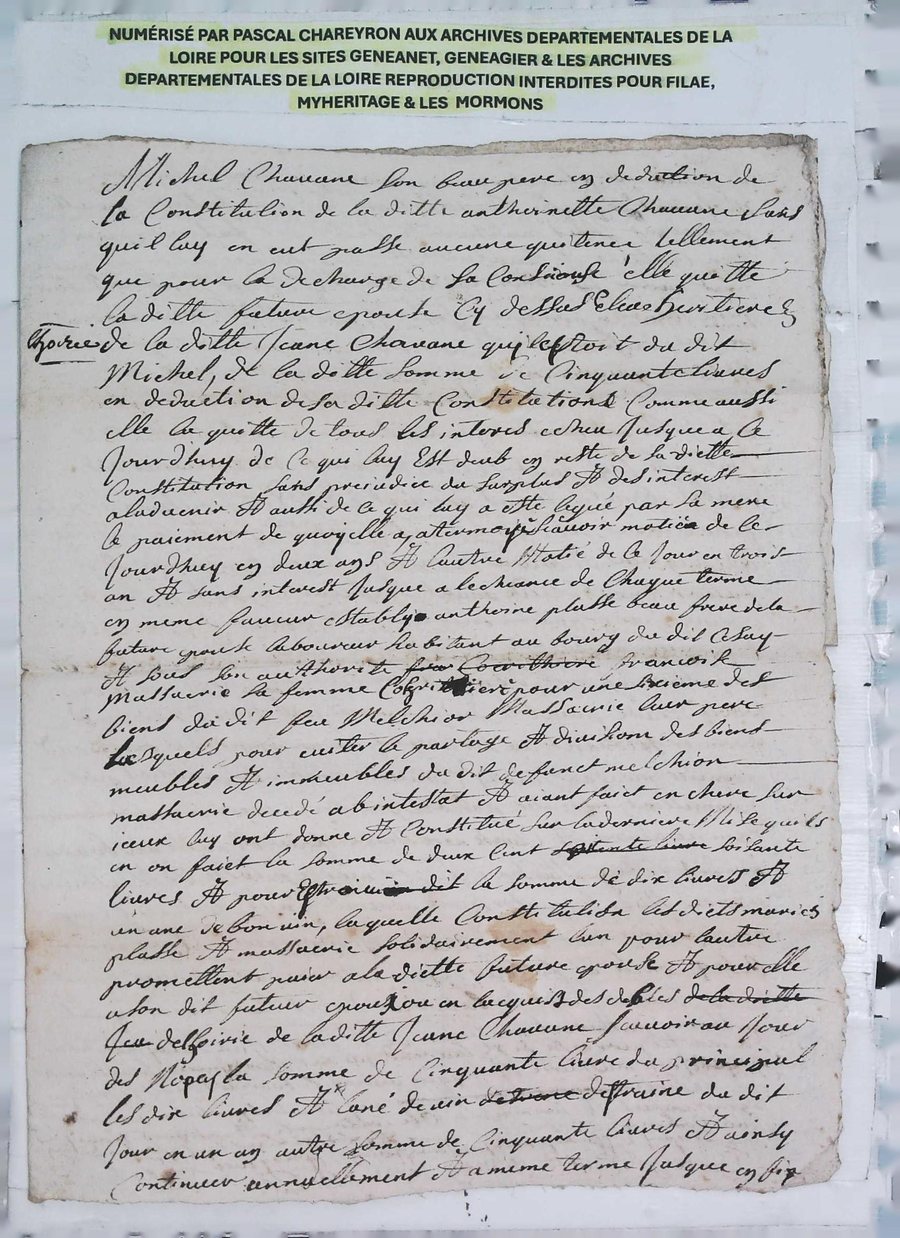 NUMÉRISÉ PAR PASCAL CHAREYRON AUX ARCHIVES DEPARTEMENTALES DE LA
LOIRE POUR LES SITES GENEANET, GENEAGIER & LES ARCHIVES
DEPARTEMENTALES DE LA LOIRE REPRODUCTION INTERDITES POUR FILAE,
MYHERITAGE & LES MORMONS
Michel Chauane son beau pere en deduction de
la Constitution de la ditte anthoinette Chauane sans
quil luy en eut passe aucune quitence tellement
que pour la decharge de sa elle quitte
la ditte future epouse Cy dessus
hoirie de la ditte Jeane Chauane du dit
Michel, de la ditte somme de Cinquante liures
en deduction de sa ditte Constitution Comme aussi
elle la quitte de tous les interes echeu Jusque a Ce
Jourdhuy de Ce qui luy Est deub en reste de sa ditte
Constitution sans prejudice du surplus Et des interest
aladuenir Et aussi de ce qui luy a este legué par sa mere
le paiement de quoy elle a atermoyé scauoir motiée de Ce
Jourdhuy en deux ans Et lautre Motié de Ce Jour en trois
an Et sans interest Jusque a lecheance de Chaque terme
en meme faueur estably anthoine plasse beau frere de la
future epouse laboureur habitant au bourg du dit Cesay
Et sous son authorite francoise
Massacrie sa femme pour une sixieme des
biens du dit feu Melchior Massacrie leur pere
lesquels pour euiter le partage Et diuision des biens
meubles Et immeubles du dit defunct melchion
massacrie decedé abintestat Et aiant faict enchere sur
iceux luy ont donne Et Constitué sur laderniere Mise quils
en on faict la somme de deux Cent soisante
liures Et pour la somme de dix liures Et
un ane de bon uin, laquelle Constitution les diets mariés
plasse Et massacrie solidairement lun pour lautre
promettent paier a la diette future epouse Et pour elle
a son dit futur epoux ou en lacquit des debtes de la ditte
de la ditte Jeane Chauane scauoir au Jour
des Nopces la somme de Cinquante liure du principal
les dix liures Et lané de uin destraine du dit
Jour en un an autre somme de Cinquante liures Et ainsy
Continuer annuellement Et a meme terme Jusque en fin